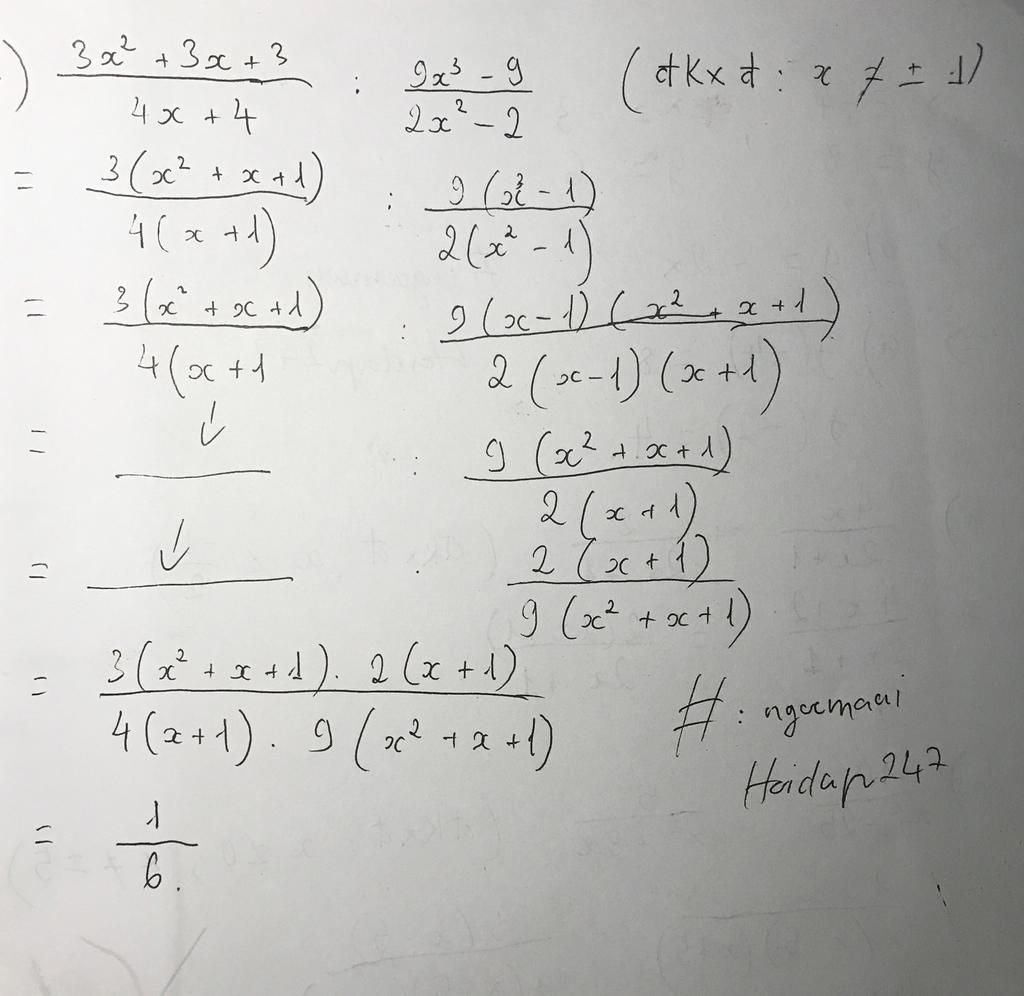 ) (3x² + 3x + 3)/(4x + 4) : (9x³ - 9)/(2x² - 2) (đkxđ: x ≠ ± 1)
= 3(x² + x + 1)/4(x + 1) : 9(x³ - 1)/2(x² - 1)
= 3(x² + x + 1)/4(x + 1 : 9(x - 1)(x² + x + 1)/2(x - 1)(x + 1)
= ↓ : 9(x² + x + 1)/2(x + 1)
= ↓ . 2(x + 1)/9(x² + x + 1)
= 3(x² + x + 1). 2(x + 1)/4(x + 1). 9(x² + x + 1)
#: ngocmaai
Hoidap247
= 1/6.